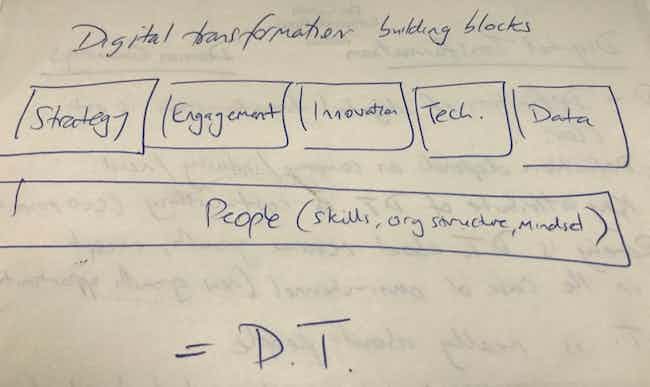 Digital transformation building blocks
Strategy Engagement Innovation Tech. Data
People (skills, org structure, Mindset)
= D.T.